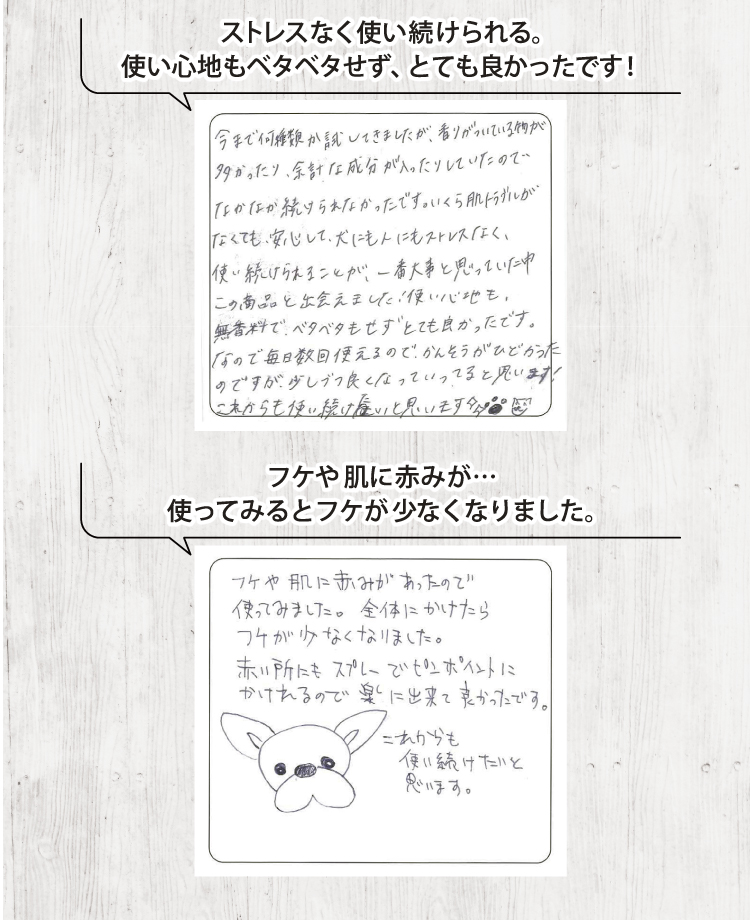 ストレスなく使い続けられる。
使い心地もベタベタせず、とても良かったです!
今まで何種類か試してきましたが、香りがついている物が
多かったり、余計な成分が入ったりしていたので
なかなか続けられなかったです。いくら肌トラブルが
なくても、安心して、犬にも人にもストレスなく、
使い続けられることが、一番大事と思っていた中
この商品と出会えました!使い心地も、
無香料で、ベタベタもせずとても良かったです。
なので毎日数回使えるので、かんそうがひどかった
のですが、少しづつ良くなっていってると思います!
これからも使い続け いと思います
フケや肌に赤みが…
使ってみるとフケが少なくなりました。
フケや肌に赤みがあったので
使ってみました。全体にかけたら
フケが少なくなりました。
赤い所にもスプレーでピンポイントに
かけれるので楽しに出来て良かったです。
これからも
使い続けたいと
思います。